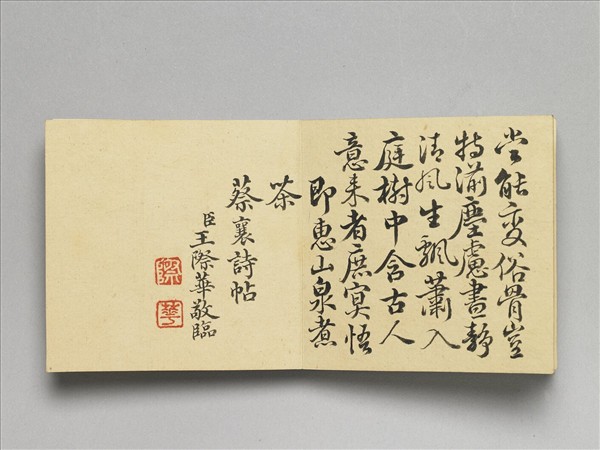 當能變俗骨豈
特湔塵慮晝靜
清風生飄蕭入
庭樹中含古人
意來者庶冥悟
即惠山泉煮
茶
蔡襄詩帖
臣王際華敬臨
際
華